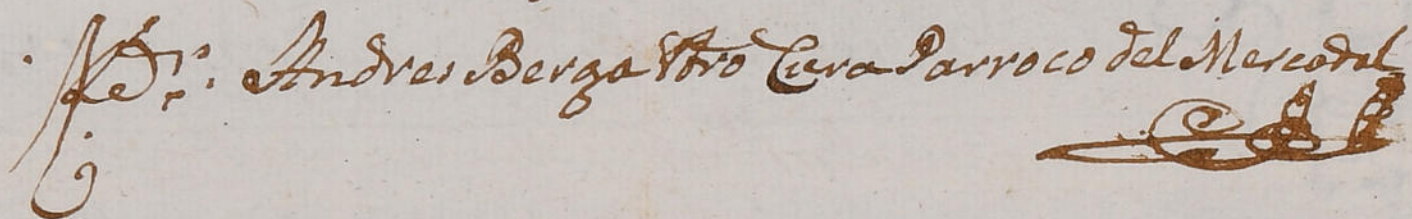 Andres Berga Pbro Cura Parroco del Mercadal